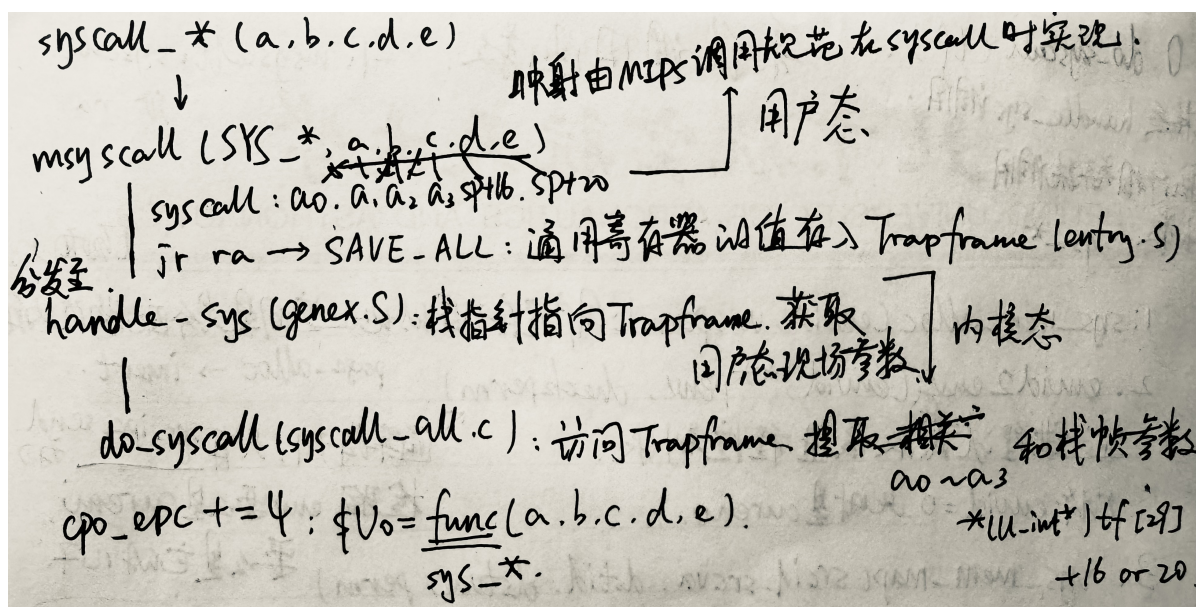 syscall_* (a.b.c.d.e)
↓
映射由MIPS调用规范在syscall时实现.
用户态
msyscall (SYS_*, a.b.c.d.e)
syscall : a0. a1 a2 a3 sp+16. sp+20
jr ra → SAVE_ALL : 通用寄存器的值存入 Trapframe (entry.S)
分发至.
handle-sys (genex.S) : 栈指针指向Trapframe. 获取
用户态现场参数.
内核态
do_syscall (syscall_all.c) : 访问Trapframe 提取 相关 和栈帧参数
a0~a3
cp0_epc += 4 ; $v0 = func(a.b.c.d.e).
sys_*.
*(u_int*) tf[29]
+16 or 20.